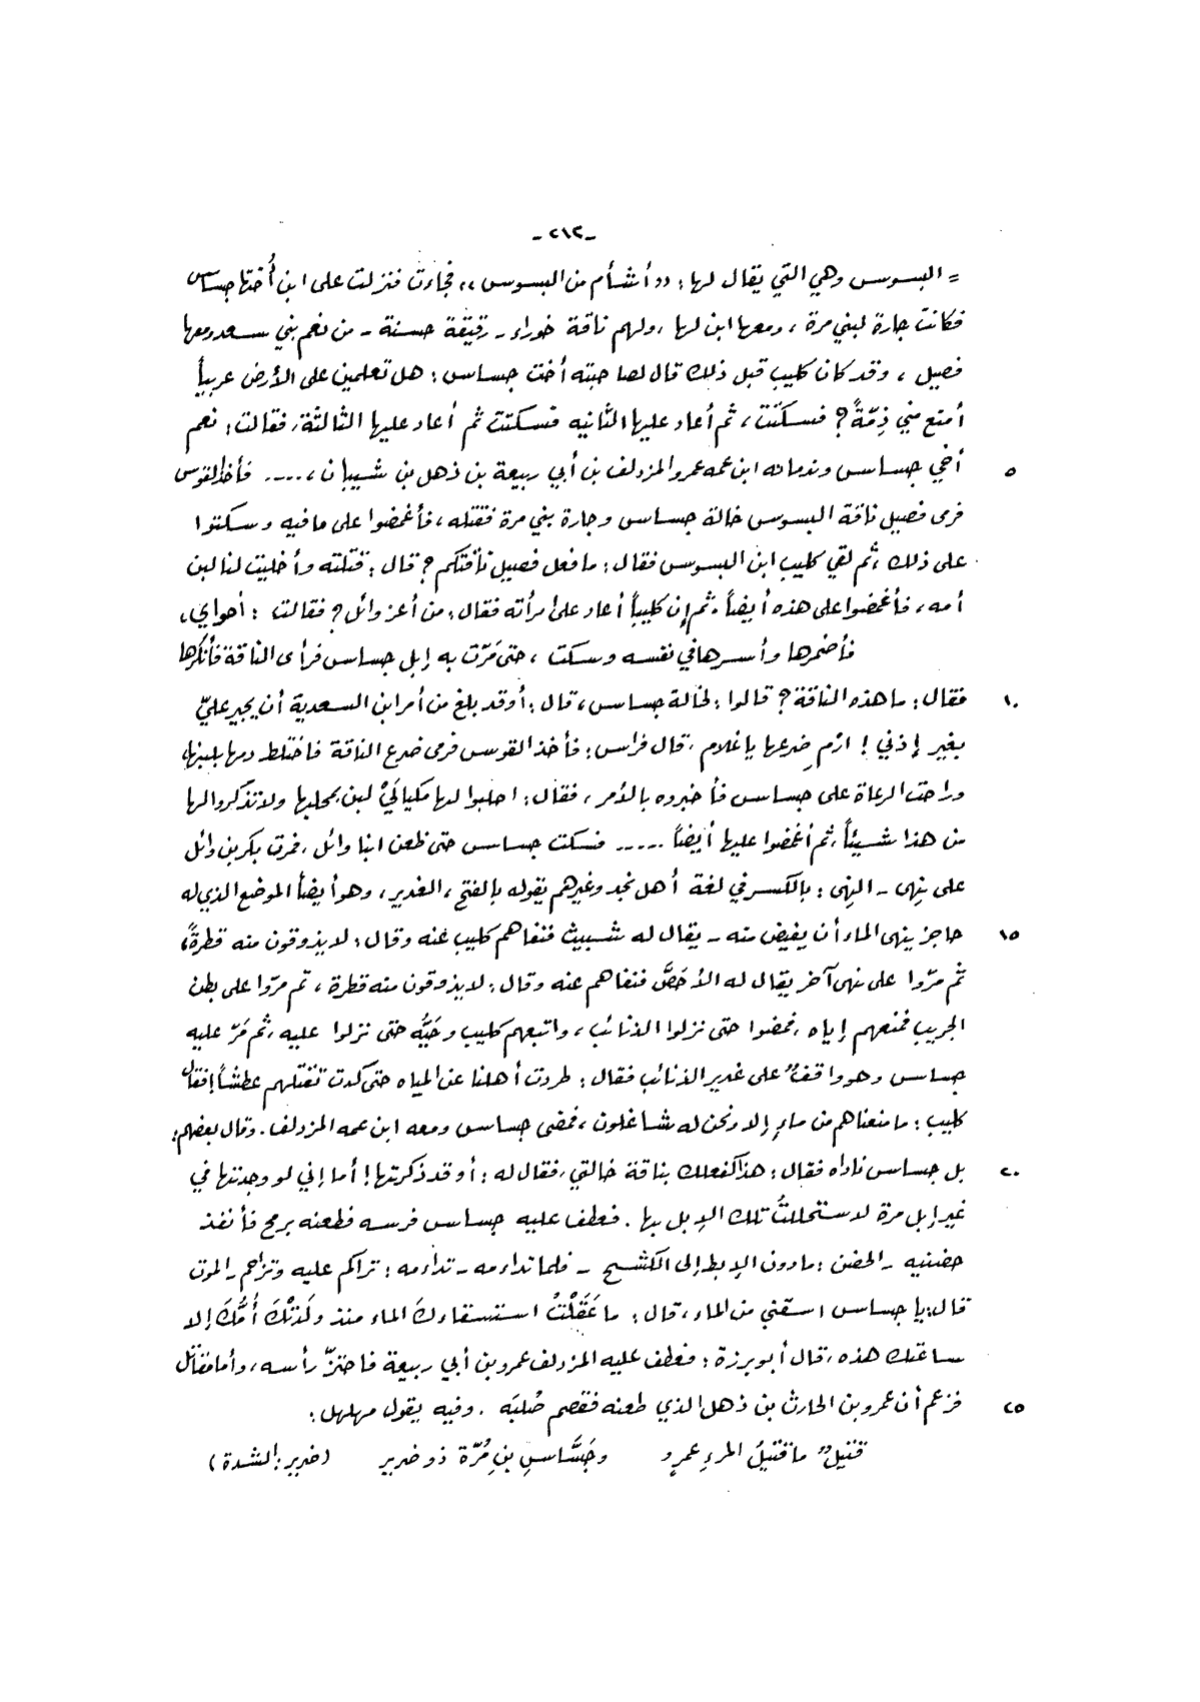 -٢١٢-
= البسوس وهي التي يقال لها: «أشأم من البسوس»، فجاءت فنزلت على ابن أُختها جساس
فكانت جارة لبني مرة، ومعها ابن لها، ولهم ناقة خوراء - رقيقة حسنة - من نعم بني سعد ومعها
فصيل، وقد كان كليب قبل ذلك قال لصاحبته أخت جساس: هل تعلمين على الأرض عربياً
أمنع مني ذِمّةً؟ فسكَتَت، ثم أعاد عليها الثانيه فسكتت ثم أعاد عليها الثالثة، فقالت: نعم
٥ أخي جساس وندمانه ابن عمه عمرو المزدلف بن أبي ربيعة بن ذهل بن شيبان، .... فأخذ القوس
فرمى فصيل ناقة البسوس خالة جساس وجارة بني مرة فقتله، فأغمضوا على ما فيه وسكتوا
على ذلك، ثم لقي كليب ابن البسوس فقال: ما فعل فصيل ناقتكم؟ قال: قتلته وأخليت لنا لبن
أمه، فأغمضوا على هذه أيضاً. ثم إن كليباً أعاد على امرأته فقال: من أعز وائل؟ فقالت: أخواي،
فأضمرها وأسرها في نفسه وسكت، حتى مَرّت به إبل جساس فرأى الناقة فأنكرها
١٠ فقال: ما هذه الناقة؟ قالوا: لخالة جساس، قال: أوقد بلغ من أمر ابن السعدية أن يجير عليّ
بغير إذني! ارْمِ ضرعها يا غلام، قال فراس: فأخذ القوس فرمى ضرع الناقة فاختلط دمها بلبنها،
وراحت الرعاة على جساس فأخبروه بالأمر، فقال: احلبوا لها مكيالَيْ لبن بمحلبها ولا تذكروا لها
من هذا شيئاً، ثم أغمضوا عليها أيضاً ..... فسكت جساس حتى ظعن ابنا وائل، فمرت بكر بن وائل
على نِهى - النِهى: بالكسر في لغة أهل نجد وغيرهم يقوله بالفتح، الغدير، وهو أيضاً الموضع الذي له
١٥ حاجز ينهى الماء أن يفيض منه - يقال له شبيث فنفاهم كليب عنه وقال: لا يذوقون منه قطرةً،
ثم مرّوا على نهى آخر يقال له الأحَصَّ فنفاهم عنه وقال: لا يذوقون منه قطرة، ثم مرّوا على بطن
الجريب فمنعهم إياه، فمضوا حتى نزلوا الذنائب، واتبعهم كليب وحَيُّه حتى نزلوا عليه، ثم مَرّ عليه
جساس وهو واقفٌ على غدير الذنائب فقال: طردت أهلنا عن المياه حتى كدت تقتلهم عطشاً! فقال
كليب: ما منعناهم من ماءٍ إلا ونحن له شاغلون، فمضى جساس ومعه ابن عمه المزدلف. وقال بعضهم:
٢٠ بل جساس ناداه فقال: هذا كفعلك بناقة خالتي، فقال له: أو قد ذكرتها! أما إني لو وجدتها في
غير إبل مرة لاستحللتُ تلك الإبل بها. فعطف عليه جساس فرسه فطعنه برمح فأنفذ
حضنيه - الحضن: ما دون الإبط إلى الكشح - فلما تداءمه - تداءمه: تراكم عليه وتزاحم - الموت
قال: يا جساس اسقني من الماء، قال: ما عَقَلْتُ استسقاءكَ الماء منذ ولَدتْكَ أُمُّكَ إلا
ساعتك هذه، قال أبو برزة: فعطف عليه المزدلف عمرو بن أبي ربيعة فاحتزّ رأسه، وأما مقاتل
٢٥ فزعم أن عمرو بن الحارث بن ذهل الذي طعنه فقصم صُلبَه. وفيه يقول مهلهل:
قتيلٌ ما قتيلُ المرءِ عمرٍو وجَسَّاسِ بنِ مُرّة ذو ضرير (ضرير: الشدة)